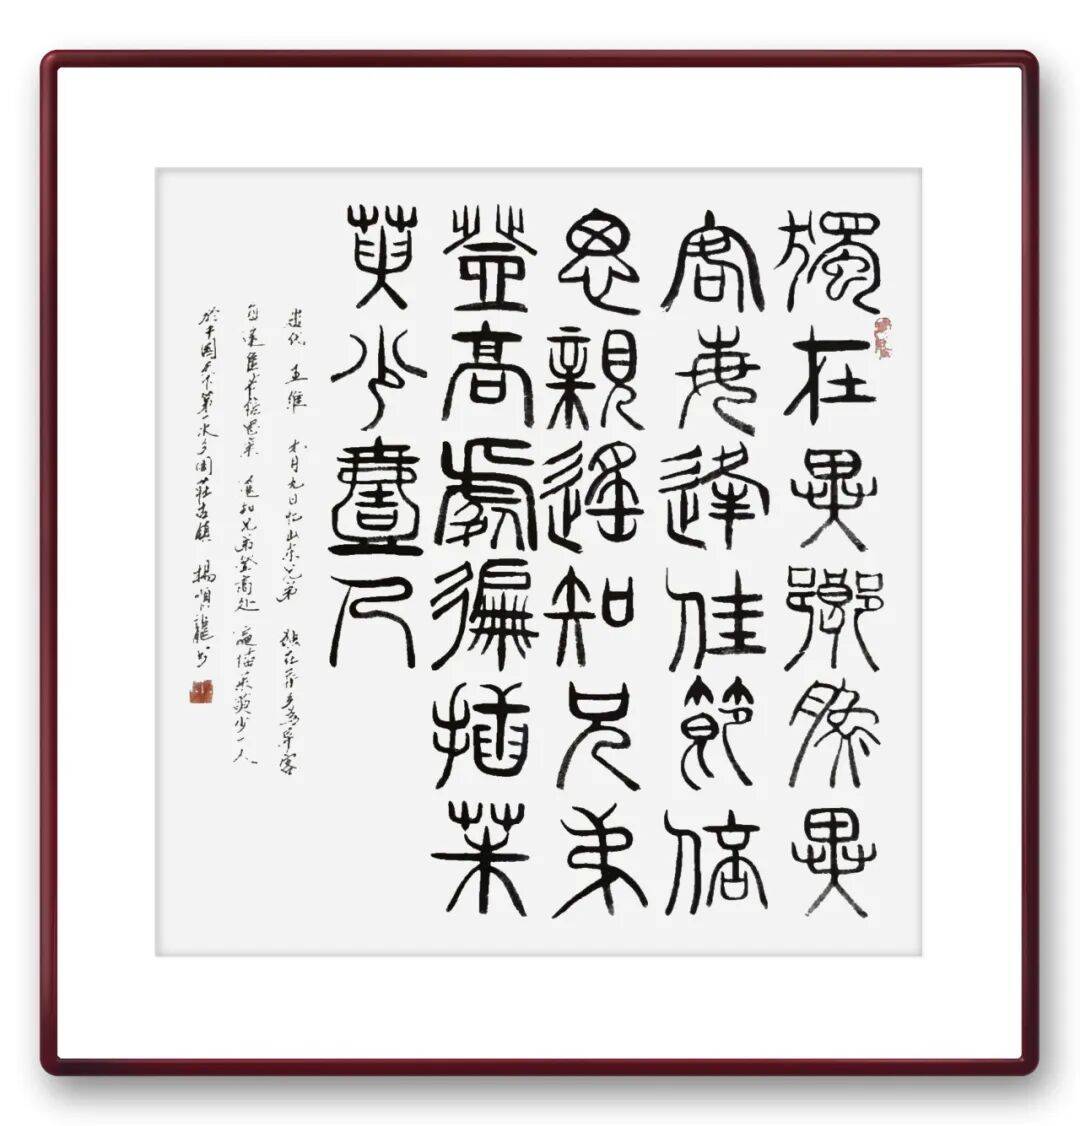 獨在異鄉為異
客每逢佳節倍
思親遙知兄弟
登高處徧插茱
萸少壹人
唐代 王維 九月九日憶山東兄弟 獨在異鄉為異客
每逢佳節倍思親 遙知兄弟登高處 遍插茱萸少一人
於中國天下第一水鄉周莊古鎮 楊順龍书